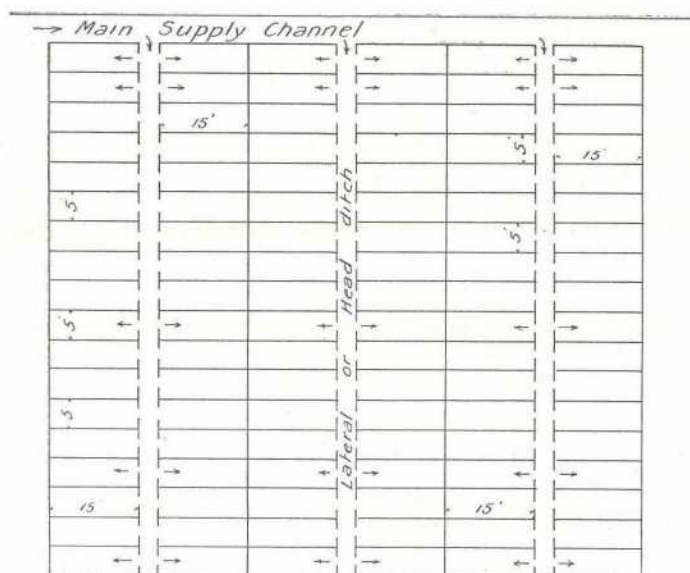 → Main Supply Channel
15'
5'
15
5'
5'
5'
5
Lateral or Head ditch
15
15'